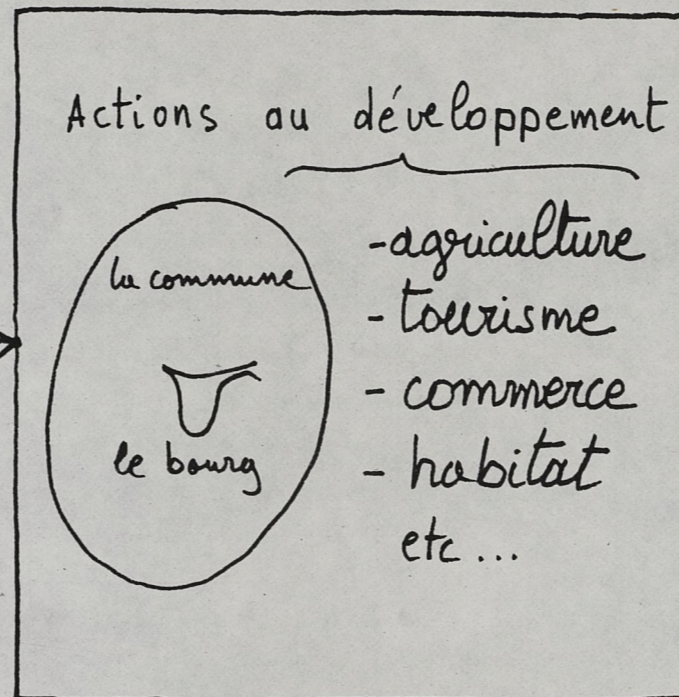 Actions au développement
la commune
le bourg
-agriculture
- tourisme
- commerce
- habitat
etc...